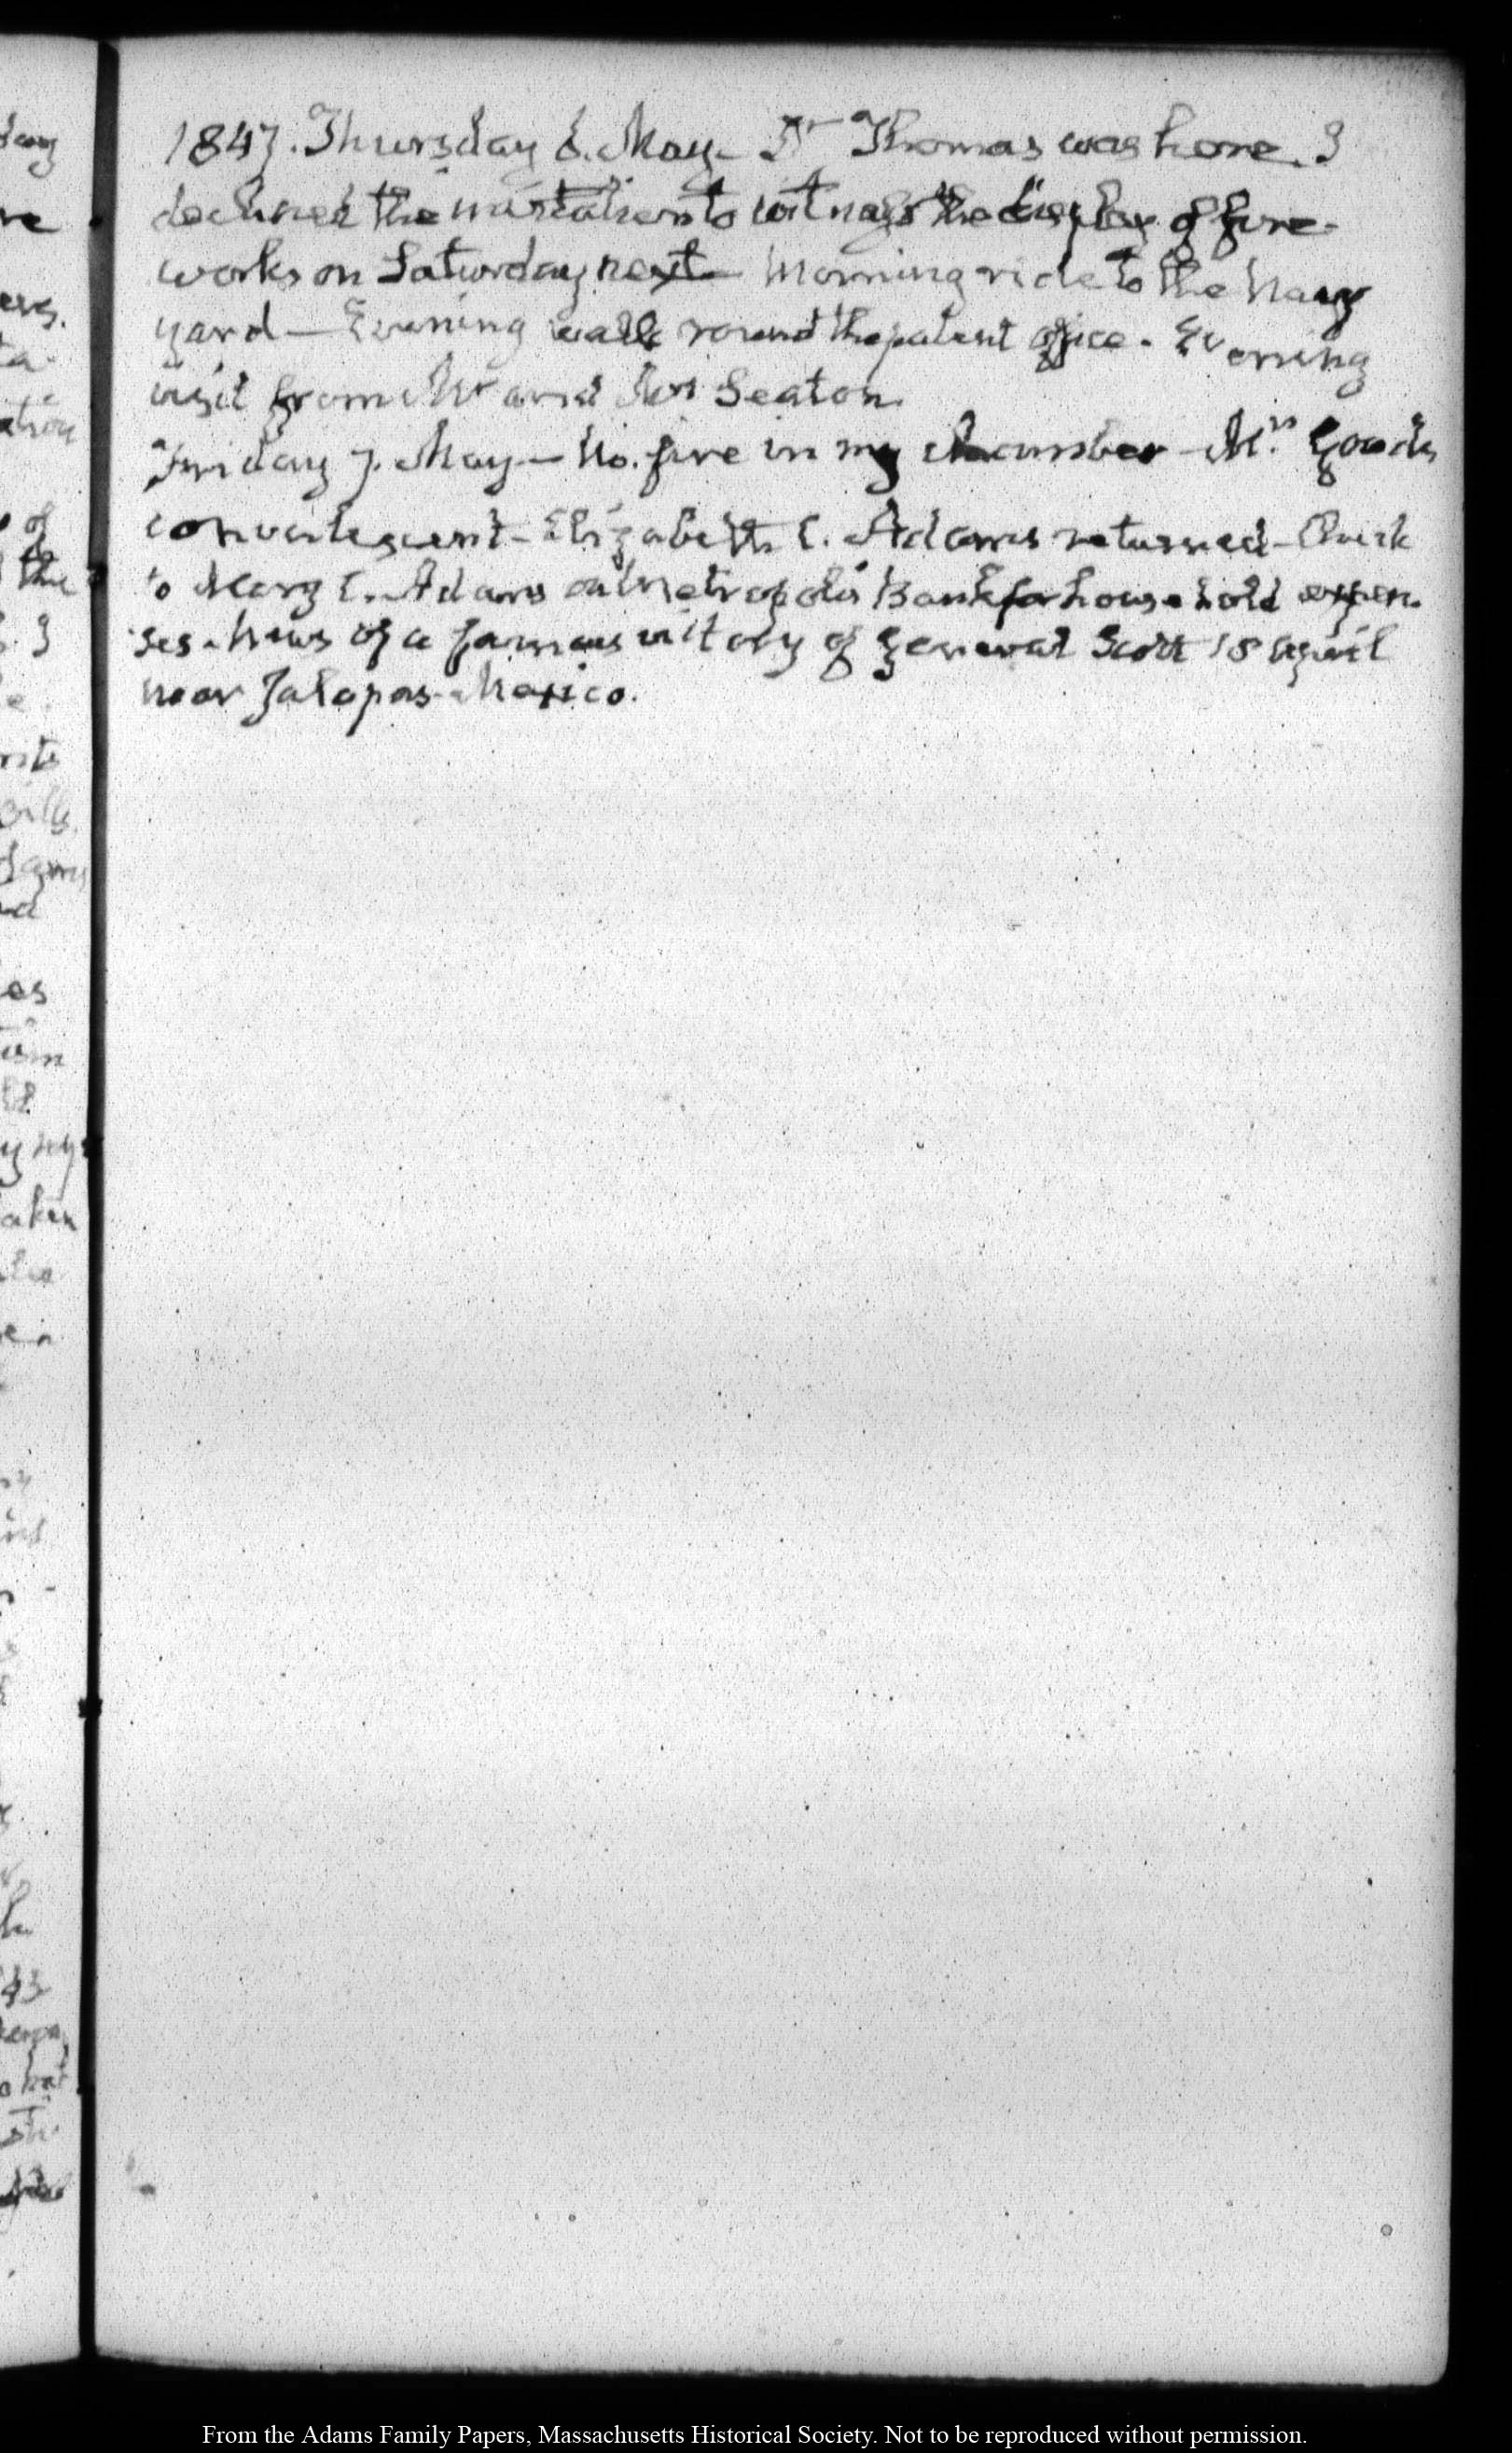 1847. Thursday 6. May – Dr Thomas was here. I
declined the invitation to witness the display of fire-
works on Saturday next – Morning ride to the Navy
yard – Evening walk round the patent office. Evening
visit from Mr and Mrs Seaton
Friday 7. May – No. fire in my chamber – Mrs Goods
convalescent – Elizabeth C. Adams returned – Check
to Mary C. Adams on Metropolis Bank for household expen-
ses. News of a famous victory of General Scott 18 April
near Jalapas. Mexico.
From the Adams Family Papers, Massachusetts Historical Society. Not to be reproduced without permission.